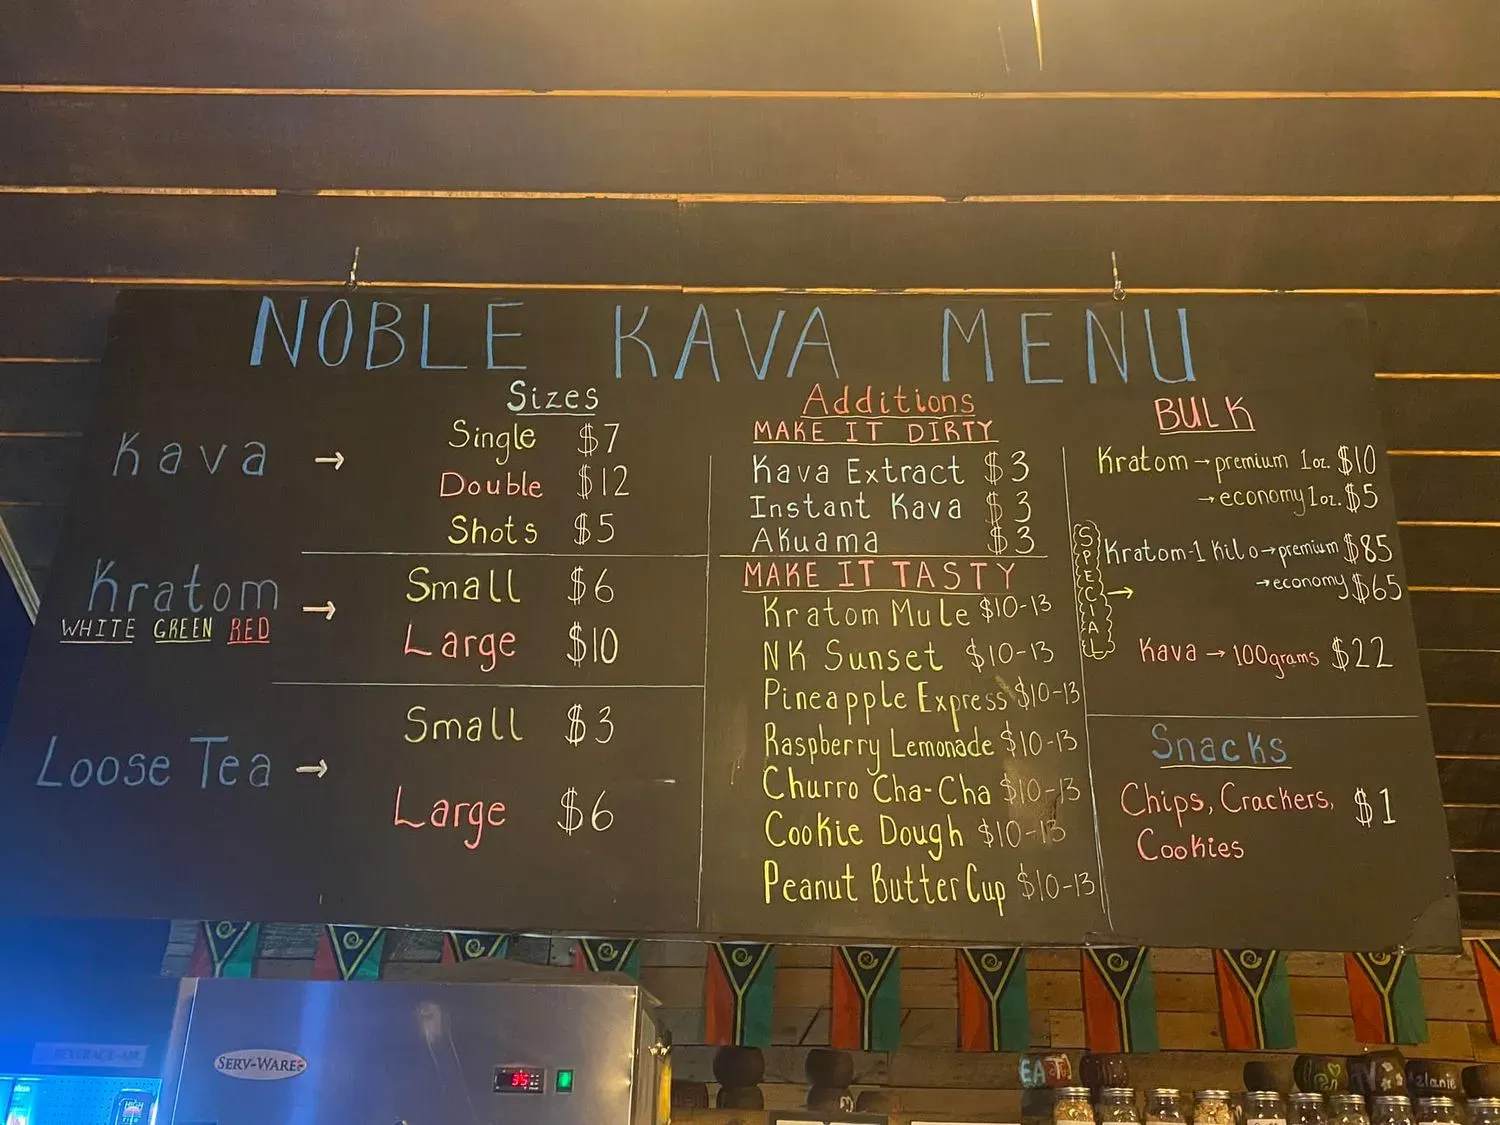 NOBLE KAVA MENU
Sizes
Kava → Single $7
Double $12
Shots $5
Kratom → Small $6
WHITE GREEN RED
Large $10
Loose Tea → Small $3
Large $6
Additions
MAKE IT DIRTY
Kava Extract $3
Instant Kava $3
Akuama $3
MAKE IT TASTY
Kratom Mule $10-13
NK Sunset $10-13
Pineapple Express $10-13
Raspberry Lemonade $10-13
Churro Cha-Cha $10-13
Cookie Dough $10-13
Peanut Butter Cup $10-13
BULK
Kratom → premium 1oz. $10
→ economy 1oz. $5
SPECIAL →
Kratom-1 Kilo → premium $85
→ economy $65
Kava → 100grams $22
Snacks
Chips, Crackers, $1
Cookies
BEVERAGE-AIR
SERV-WARE
35
EAT
Melanie